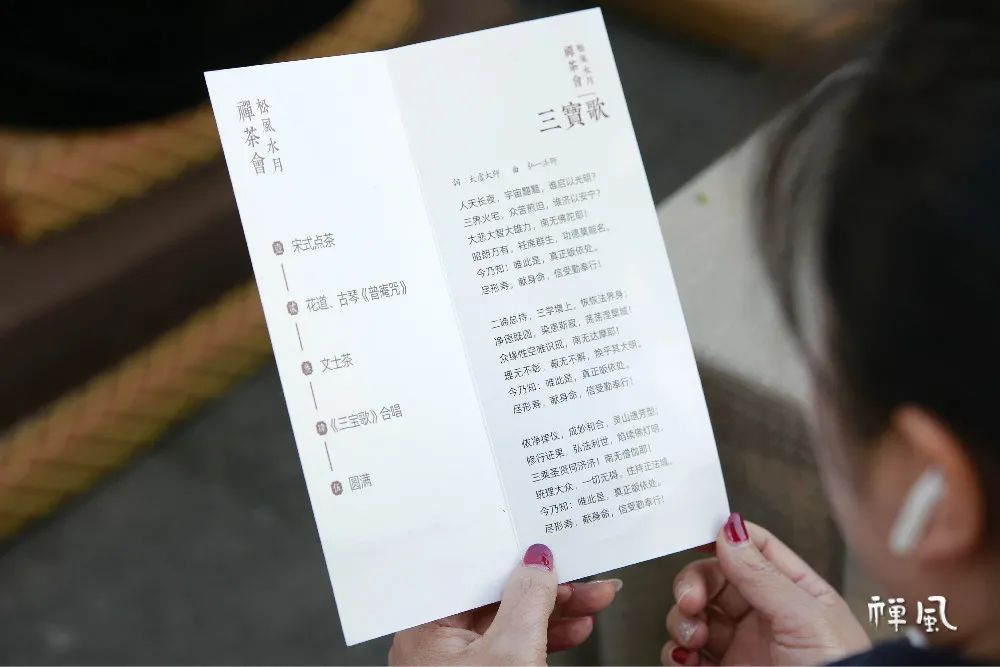 松風水月
禪茶會
壹 宋式点茶
貳 花道、古琴《普庵咒》
叁 文士茶
肆 《三宝歌》合唱
伍 圆满
松風水月
禪茶會
三寶歌
詞 太虛大師 曲 弘一法師
人天长夜，宇宙黮黯，谁启以光明？
三界火宅，众苦煎迫，谁济以安宁？
大悲大智大雄力，南无佛陀耶！
昭朗万有，衽席群生，功德莫能名。
今乃知：唯此是，真正皈依处。
尽形寿，献身命，信受勤奉行！
二谛总持，三学增上，恢恢法界身；
净德既圆，染患斯寂，荡荡涅槃城！
众缘性空唯识现，南无达摩耶！
理无不彰，蔽无不解，焕乎其大明。
今乃知：唯此是，真正皈依处。
尽形寿，献身命，信受勤奉行！
依净律仪，成妙和合，灵山遗芳型；
修行证果，弘法利世，焰续佛灯明，
三乘圣贤何济济！南无僧伽耶！
统理大众，一切无碍，住持正法城。
今乃知：唯此是，真正皈依处。
尽形寿，献身命，信受勤奉行！
禪風